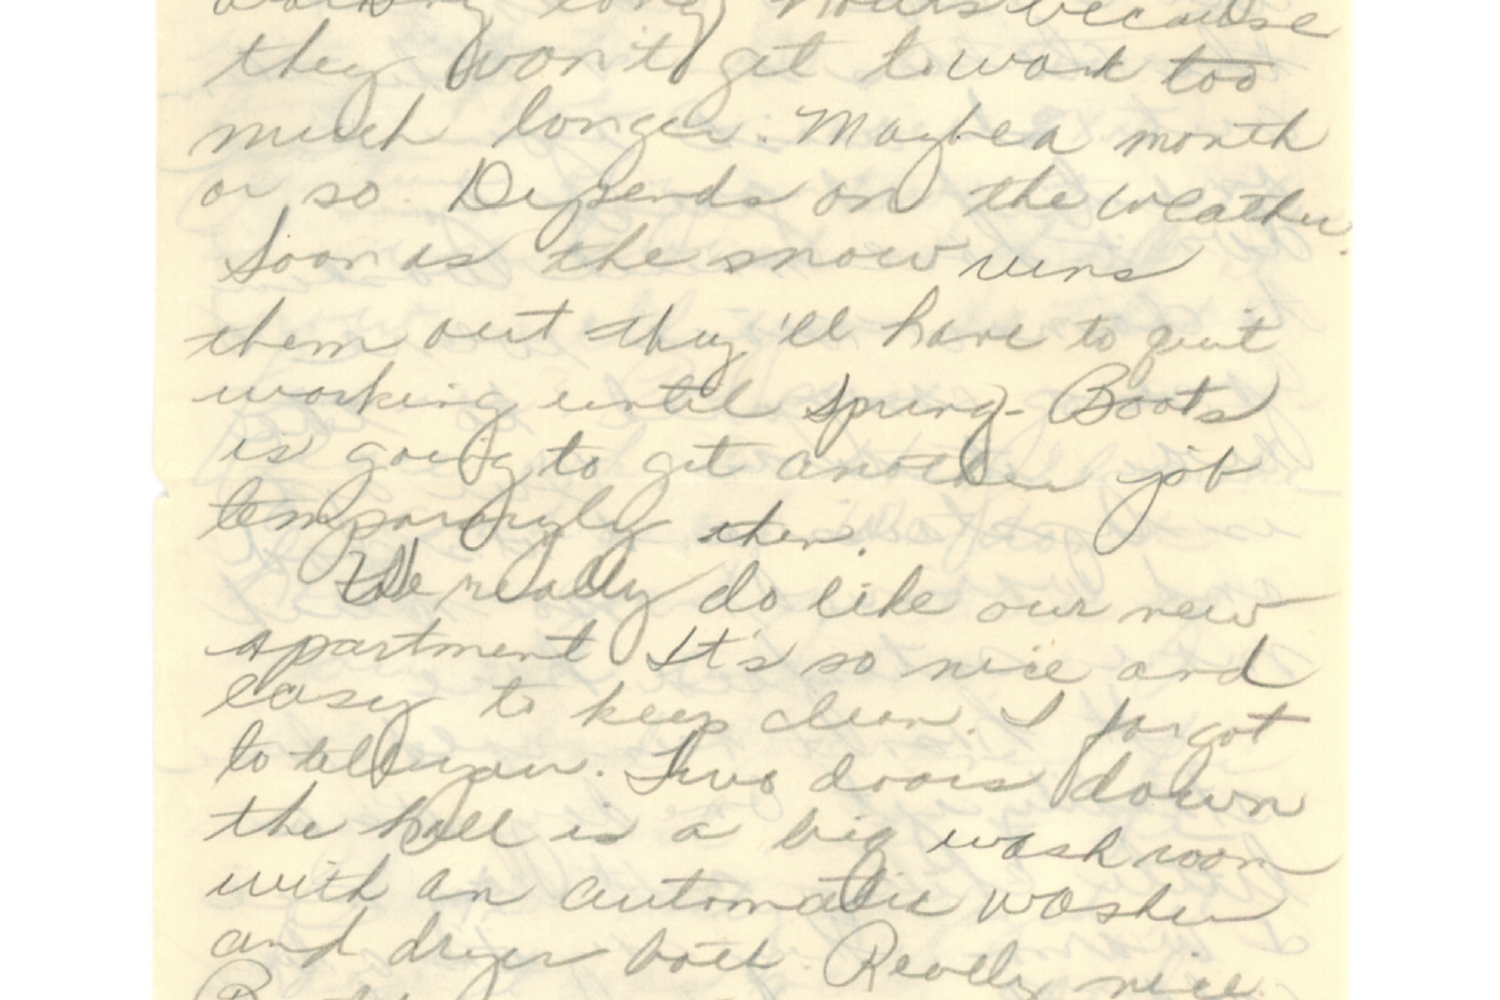 working long hours because
they won't get to work too
much longer. Maybe a month
or so. Depends on the weather.
Soon as the snow runs
them out they'll have to quit
working until Spring - Boots
is going to get another job
temporarily then.
We really do like our new
apartment It's so nice and
easy to keep clean. I forgot
to tell you. Two doors down
the hall is a big wash room
with an automatic washer
and dryer both. Really nice.